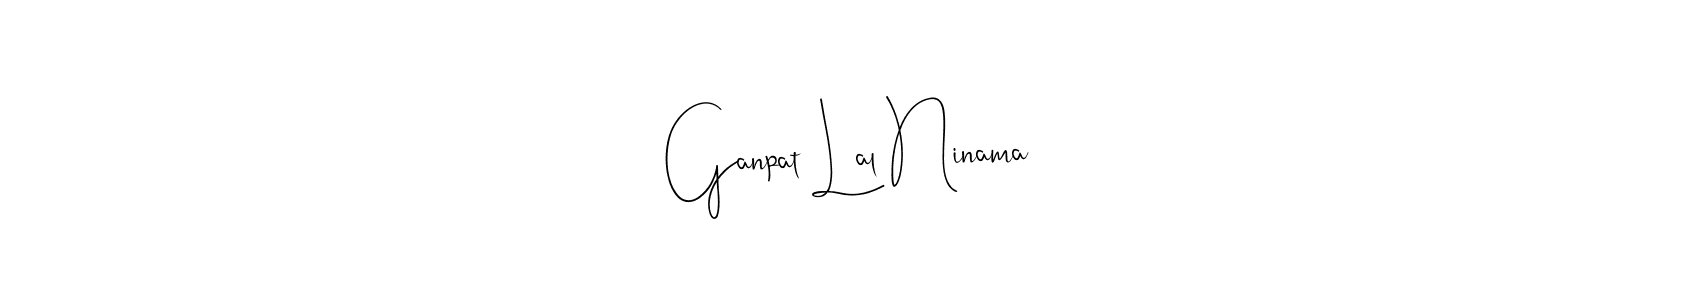 Ganpat Lal Ninama